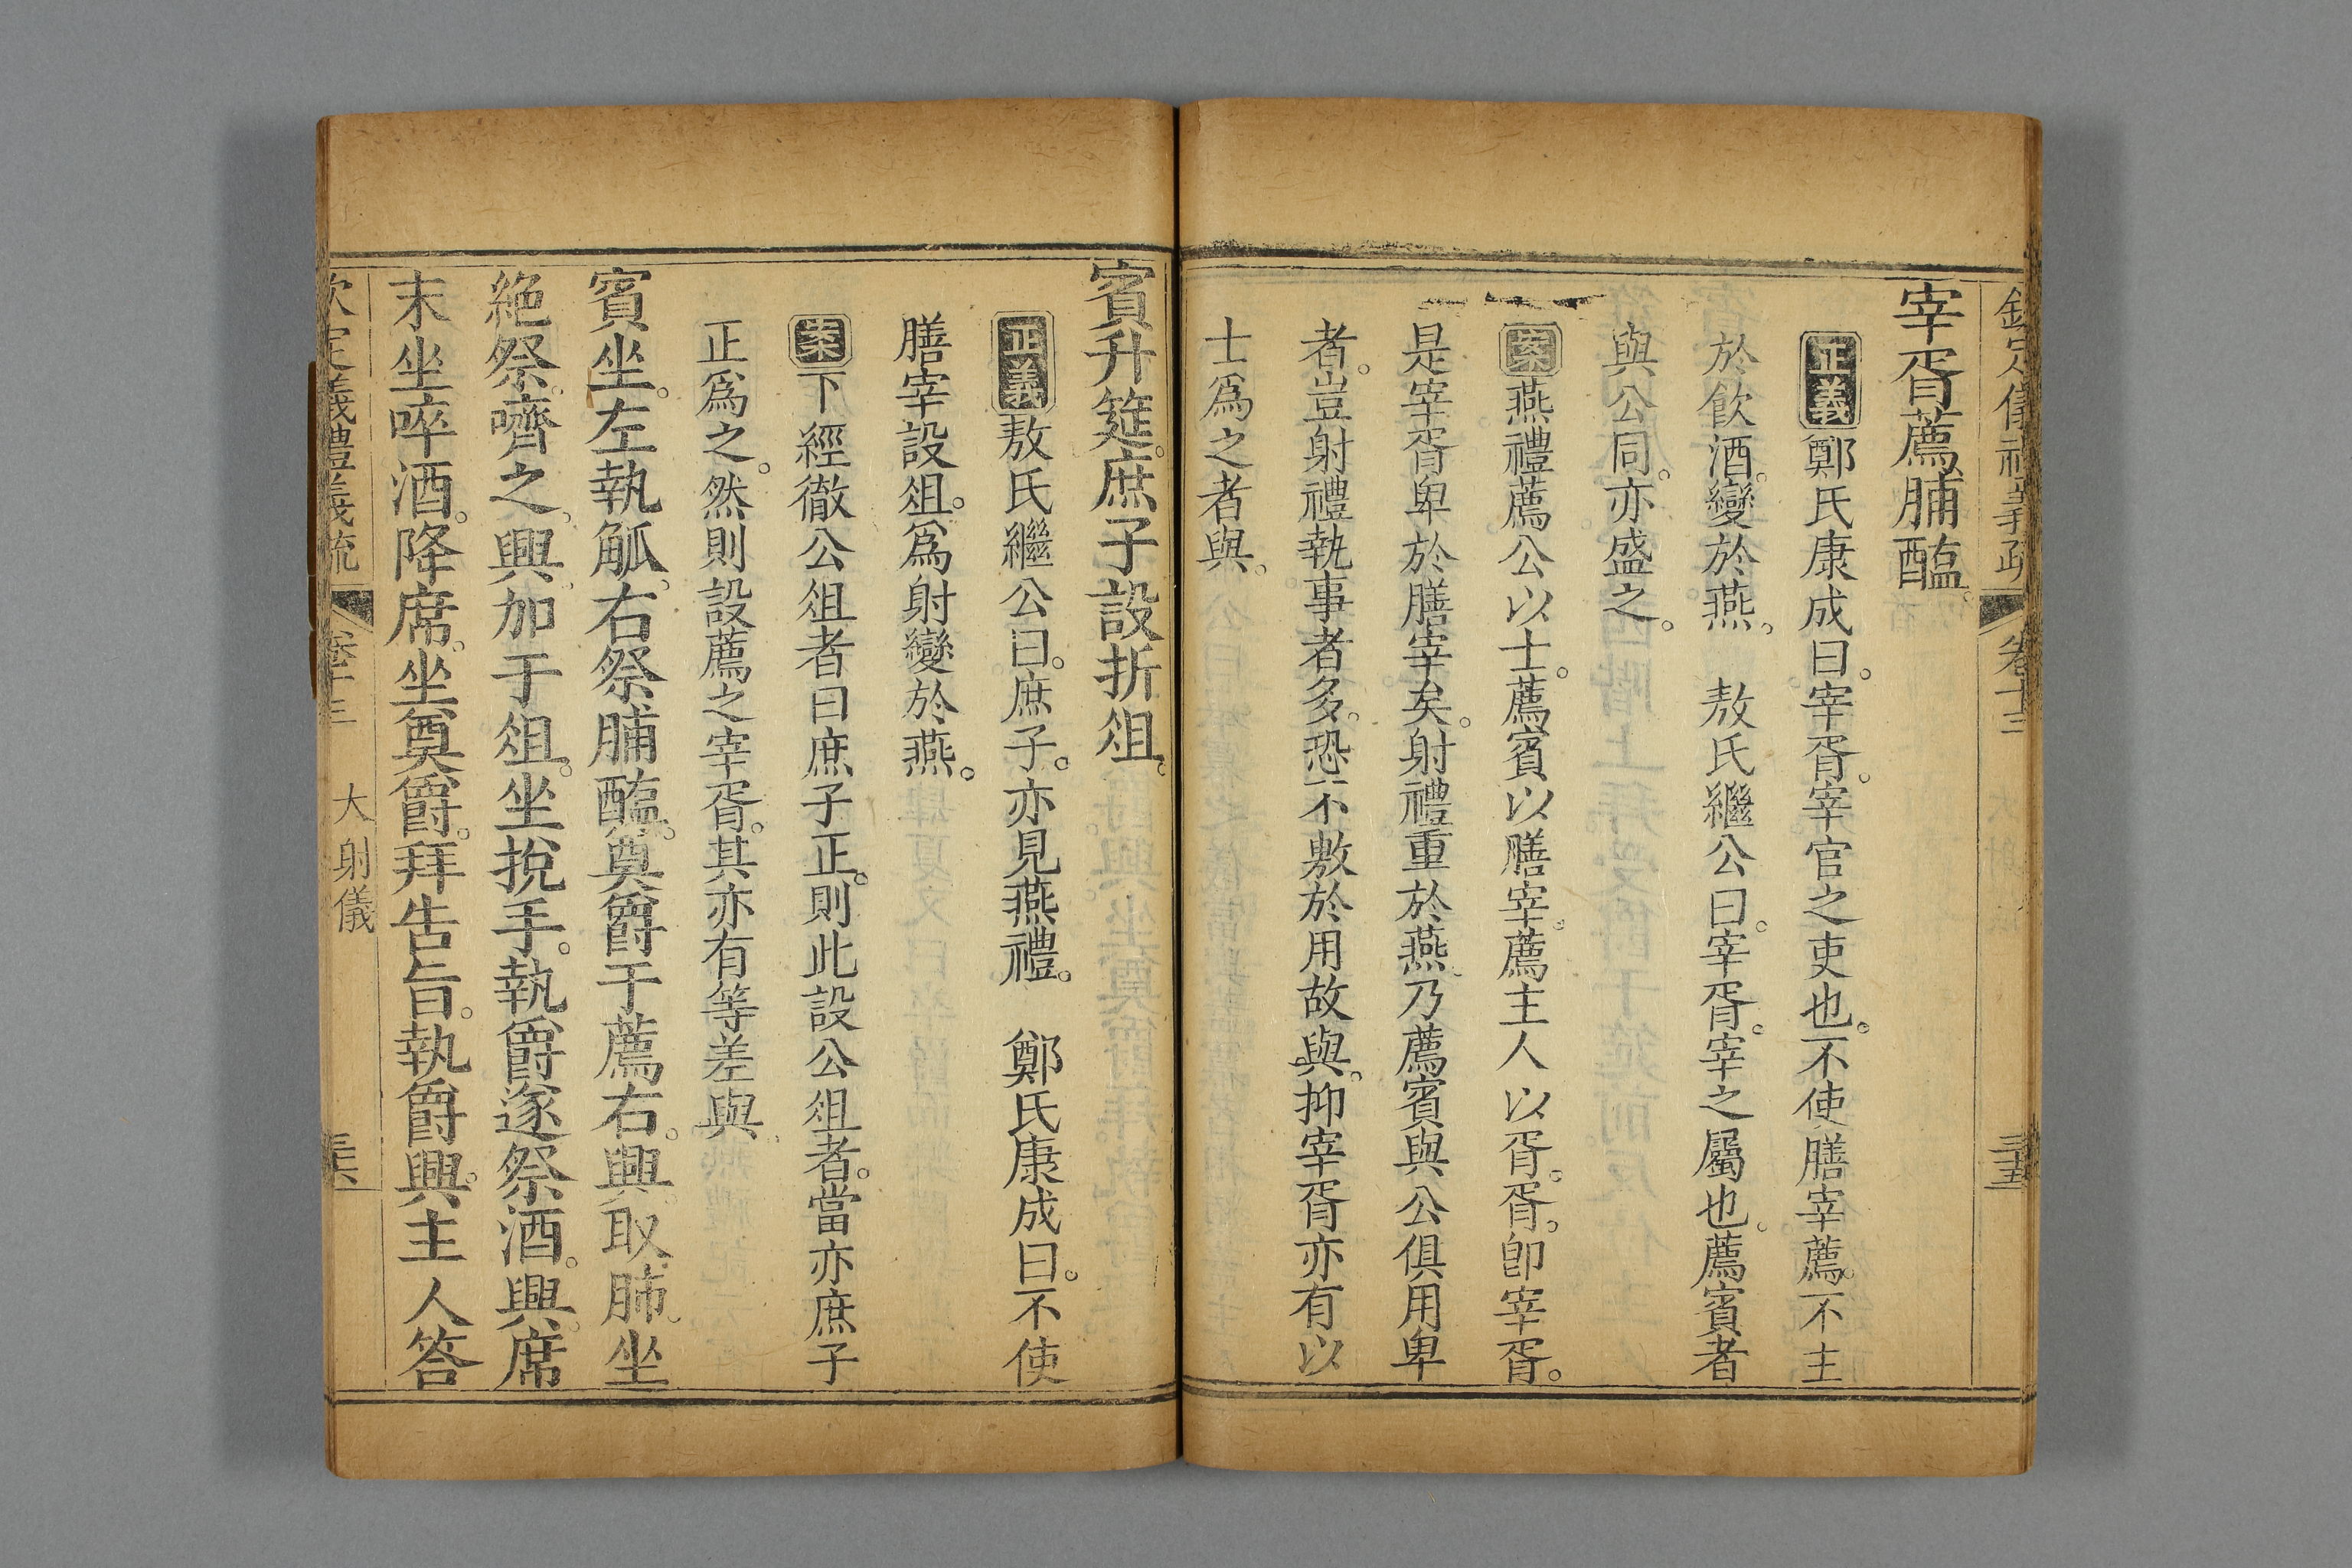 欽定儀禮義疏 卷十三 三十五
宰胥薦脯醢。
正義鄭氏康成曰。宰胥。宰官之吏也。不使膳宰薦。不主
於飲酒。變於燕。 敖氏繼公曰。宰胥。宰之屬也。薦賓者
與公同。亦盛之。
案燕禮薦公以士。薦賓以膳宰。薦主人以胥。胥。卽宰胥。
是宰胥卑於膳宰矣。射禮重於燕。乃薦賓與公俱用卑
者。豈射禮執事者多。恐不敷於用故與。抑宰胥亦有以
士爲之者與。
賓升筵。庶子設折俎。
正義敖氏繼公曰。庶子。亦見燕禮。 鄭氏康成曰。不使
膳宰設俎。爲射變於燕。
案下經徹公俎者曰庶子正。則此設公俎者。當亦庶子
正爲之。然則設薦之宰胥。其亦有等差與。
賓坐。左執觚。右祭脯醢。奠爵于薦右。興取肺。坐
絶祭。嚌之。興加于俎。坐挩手。執爵遂祭酒。興。席
末坐啐酒。降席。坐奠爵。拜告旨。執爵興。主人答
欽定儀禮義疏 卷十三 大射儀 三十六